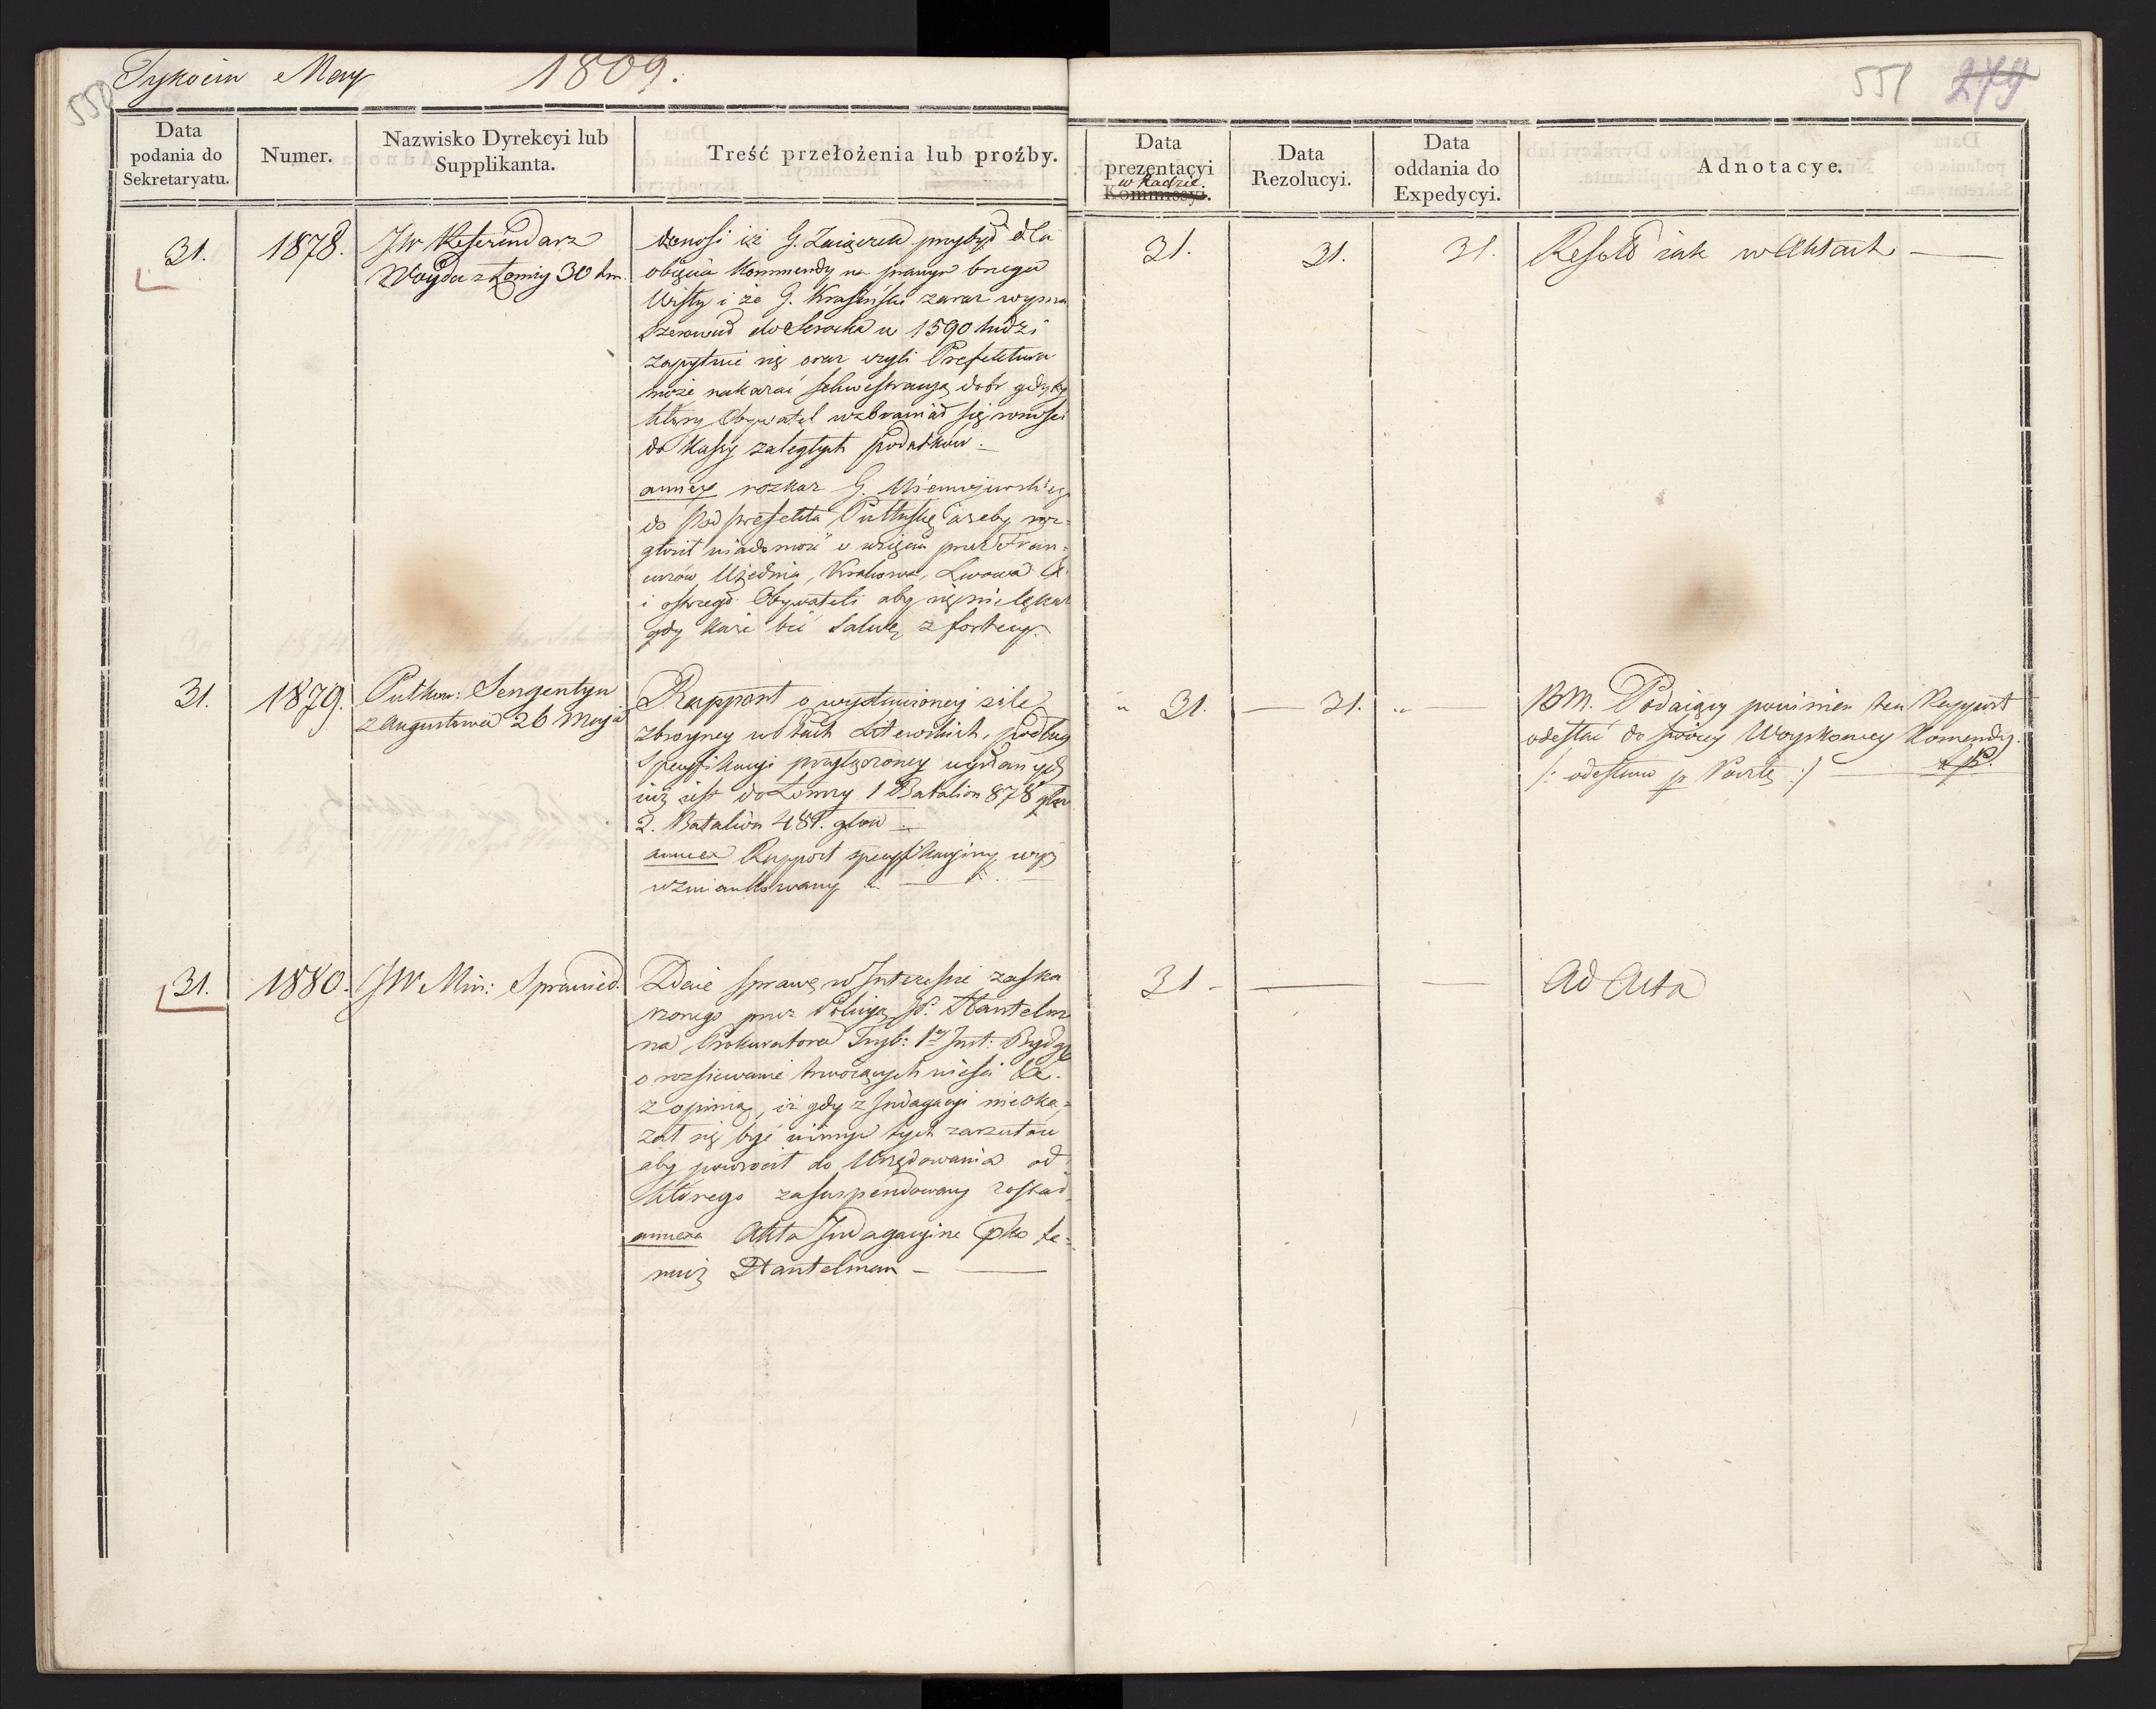 550 Tykocin May 1809.
551 279
Data podania do Sekretaryatu.
Numer.
Nazwisko Dyrekcyi lub Supplikanta.
Treść przełożenia lub proźby.
Data prezentacyi w Radzie. Kommissyi.
Data Rezolucyi.
Data oddania do Expedycyi.
Adnotacye.
31. 1878. JW Referendarz
Woyda z Łomży 30 hm.
donosi iż G. Zaiączek przybył dla
obięcia Kommendy na prawym brzegu
Wisły i że G. Krasiński zaraz wyma
szerował do Serocka w 1590 ludzi
zapytuie się oraz czyli Prefektura
może nakazać sekwestracyą dobr gdyby
który Obywatel wzbraniał się wnosić
do Kassy zaległych podatków.
annexe rozkaz G.
do Podprefekta Pułtuskę ażeby
głosił wiadomość o wzięciu przez Fran=
cuzów Wiednia, Krakowa, Lwowa &
i ostrzegł Obywateli aby się nie lękali
gdy każe bić Salwę z fortecy.
31. 31. 31. Resold iak w Aktach
31. 1879. Pułkow: Sengentyn
z Augustowa 26 Maja
Rapport o wystawioney sile
zbroyney w Ptach Litewskich, podług
specyfikacyi przyłączoney wysłanych
iuż iest do Łomży 1 Batalion 878 głów
2. Batalion 481. głow
annex Rapport specyfikacyiny wyż
wzmiankowany
" 31. 31. " BM. Podaiący powinien ten Rapport
odesłać do swoiey Woyskowey Komendy.
/: odesłano p Pocztę :/
31. 1880. JW Min: Sprawied.
Zdaie sprawę w Interessie zaska
rzonego przez Policyą P. Hantelm
na Prokuratora Tryb: 1ey Inst: Bydg
o rozsiewanie trwożących wieści &c.
z opinią, iż gdy z Indagacyi nieoka=
zał się być winnym tych zarzutów
aby powrócił do Urzędowania od
którego zasuspendowany został.
annexa Akta Indagacyine pko te=
muż Hantelman
31 - Ad Acta